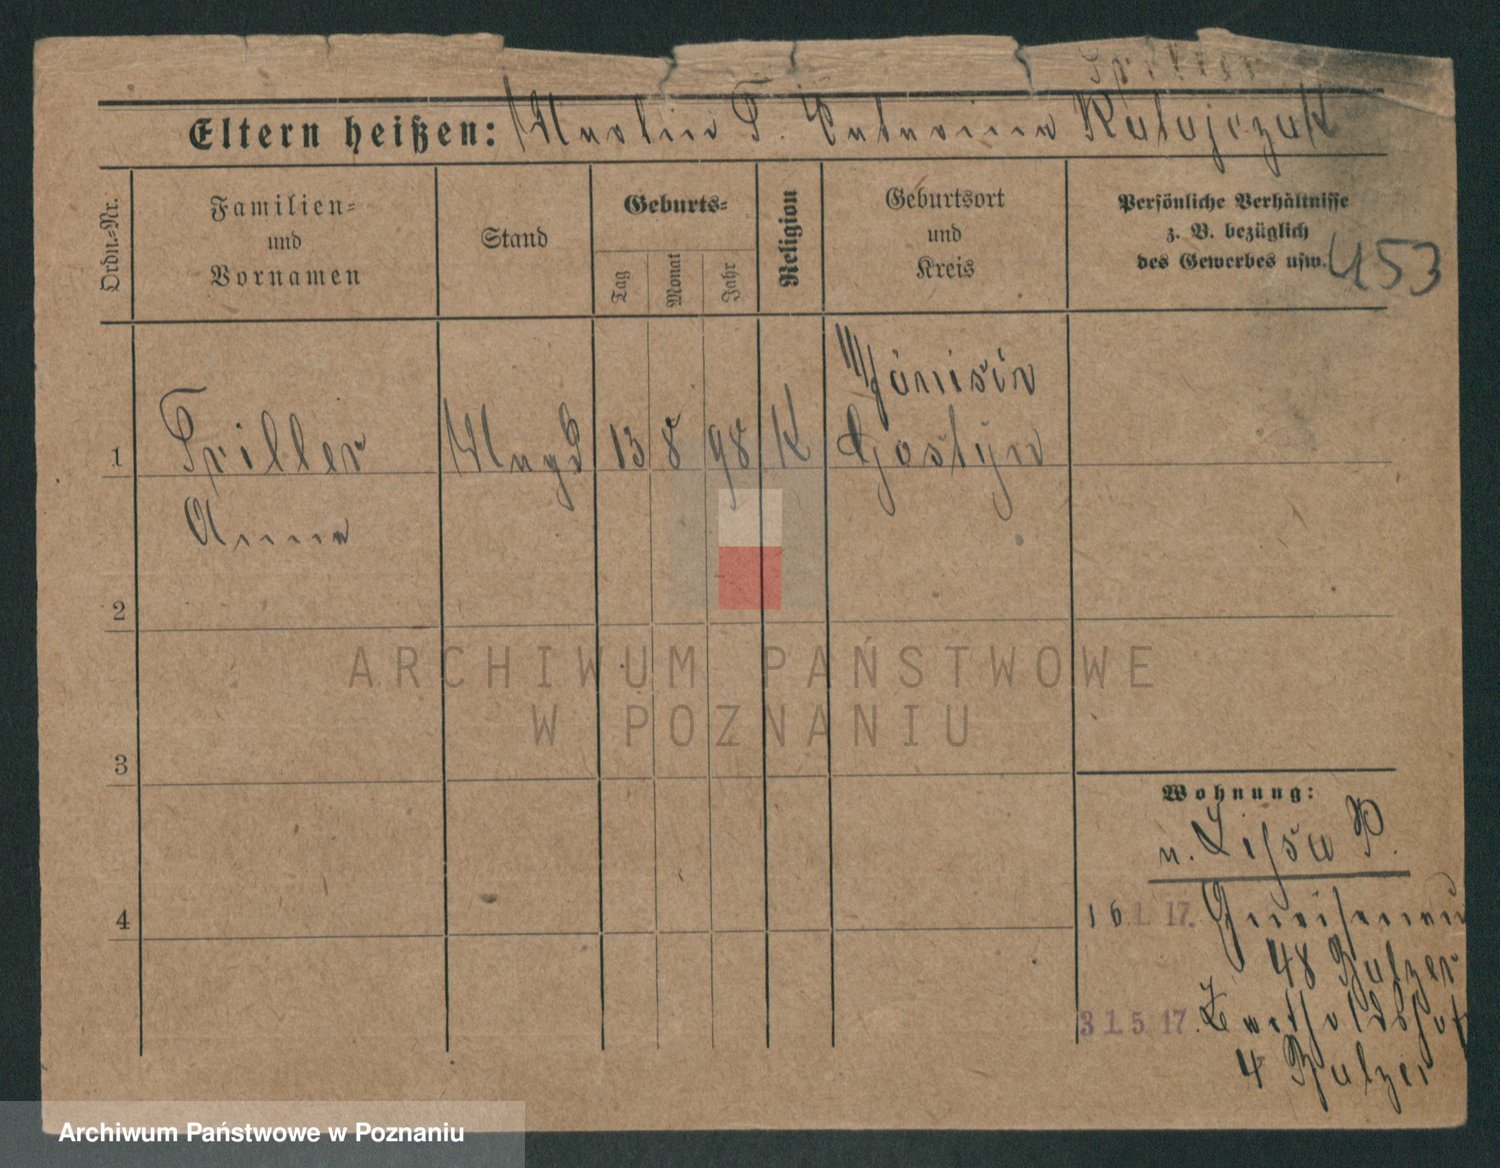 Priller
Eltern heißen: Martin P. Catarina Ratajczak
Ordn.-Nr.
Familien-
und
Vornamen
Stand
Geburts-
Tag
Monat
Jahr
Religion
Geburtsort
und
Kreis
Persönliche Verhältnisse
z. B. bezüglich
des Gewerbes usw.
453
1
Priller
Anna
Magd
13 8 98 K
Gostyn
2
3
4
ARCHIWUM PAŃSTWOWE
W POZNANIU
Wohnung:
n. Lissa P.
16.1.17. Gneisenau
48 Balzer
31.5.17.
4 Balzer
Archiwum Państwowe w Poznaniu